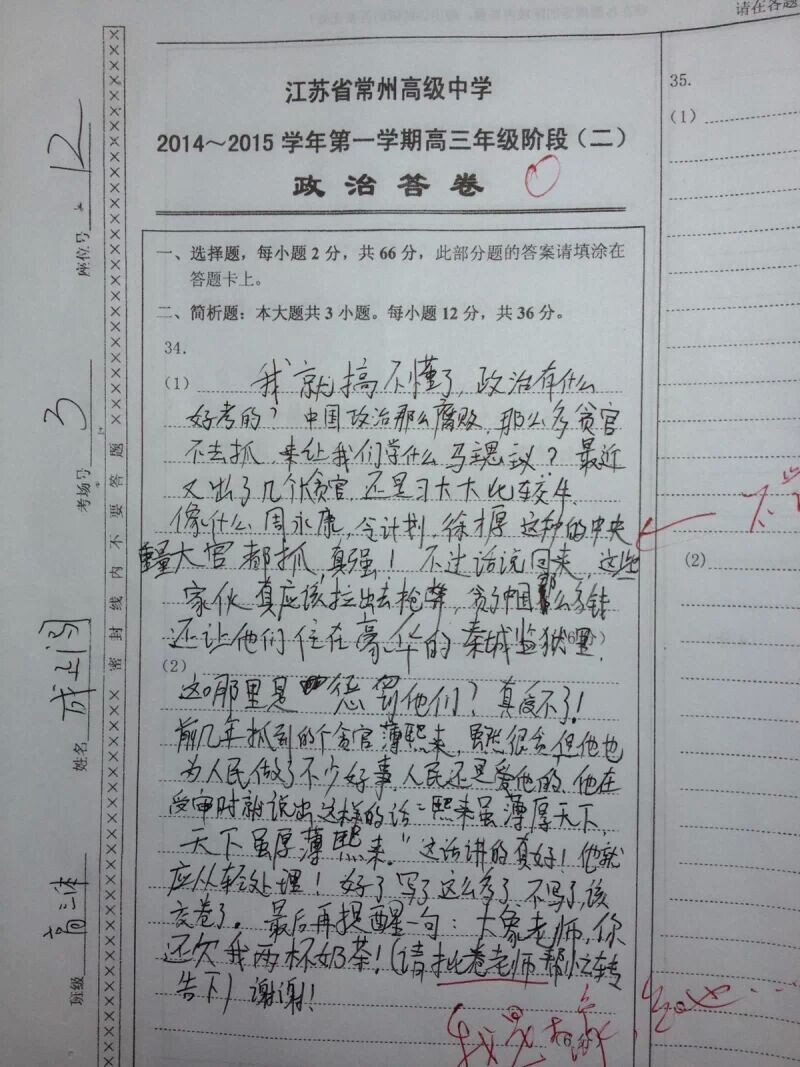 请在各题
江苏省常州高级中学
2014～2015 学年第一学期高三年级阶段（二）
政治答卷
0
一、选择题，每小题 2 分，共 66 分，此部分题的答案请填涂在
答题卡上。
二、简析题：本大题共 3 小题。每小题 12 分，共 36 分。
34.
（1） 我就搞不懂了，政治有什么
好考的？中国政治那么腐败，那么多贪官
不去抓，来让我们学什么马思议？最近
又出了几个贪官，还是习大大比较牛
像什么周永康，令计划，徐才厚这种的中央
重量大官都抓，真强！不过话说回来，这些
家伙真应该拉出去枪毙，贪了中国那么多钱
还让他们住在豪华的秦城监狱里，
（6分）
（2）
这哪里是惩罚他们？真受不了！
前几年抓到的个贪官薄熙来，虽然很贪但他也
为人民做了不少好事，人民还是爱他的，他在
受审时就说出这样的话："熙来虽薄厚天下，
天下虽厚薄熙来。"这话讲的真好！他就
应从轻处理！好了写了这么多了，不写了，该
交卷了。最后再提醒一句：大象老师，你
还欠我两杯奶茶！（请批卷老师帮忙转
告下）谢谢！
座位号 12
考场号 3
姓名
班级 高三
密封线内不要答题
35.
（1）
（2）